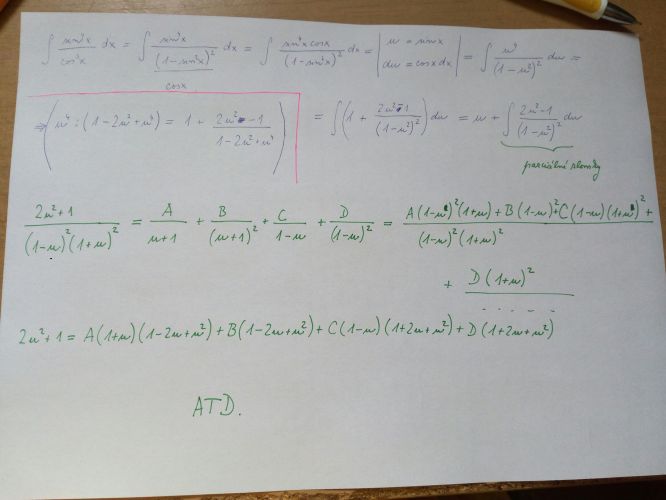 ∫ sin⁴x/cos³x dx = ∫ sin⁴x/((1-sin²x)²/cosx) dx = ∫ sin⁴x cosx/(1-sin²x)² dx = | u = sinx, du = cosx dx | = ∫ u⁴/(1-u²)² du =
⇒ (u⁴ : (1-2u²+u⁴) = 1 + (2u²-1)/(1-2u²+u⁴)) = ∫(1 + (2u²-1)/(1-u²)²) du = u + ∫ (2u²-1)/(1-u²)² du
parciální zlomky
(2u²+1)/((1-u)²(1+u)²) = A/(u+1) + B/(u+1)² + C/(1-u) + D/(1-u)² = (A(1-u)²(1+u) + B(1-u)² + C(1-u)(1+u)² +)/((1-u)²(1+u)²)
+ D(1+u)²/.....
2u²+1 = A(1+u)(1-2u+u²) + B(1-2u+u²) + C(1-u)(1+2u+u²) + D(1+2u+u²)
ATD.